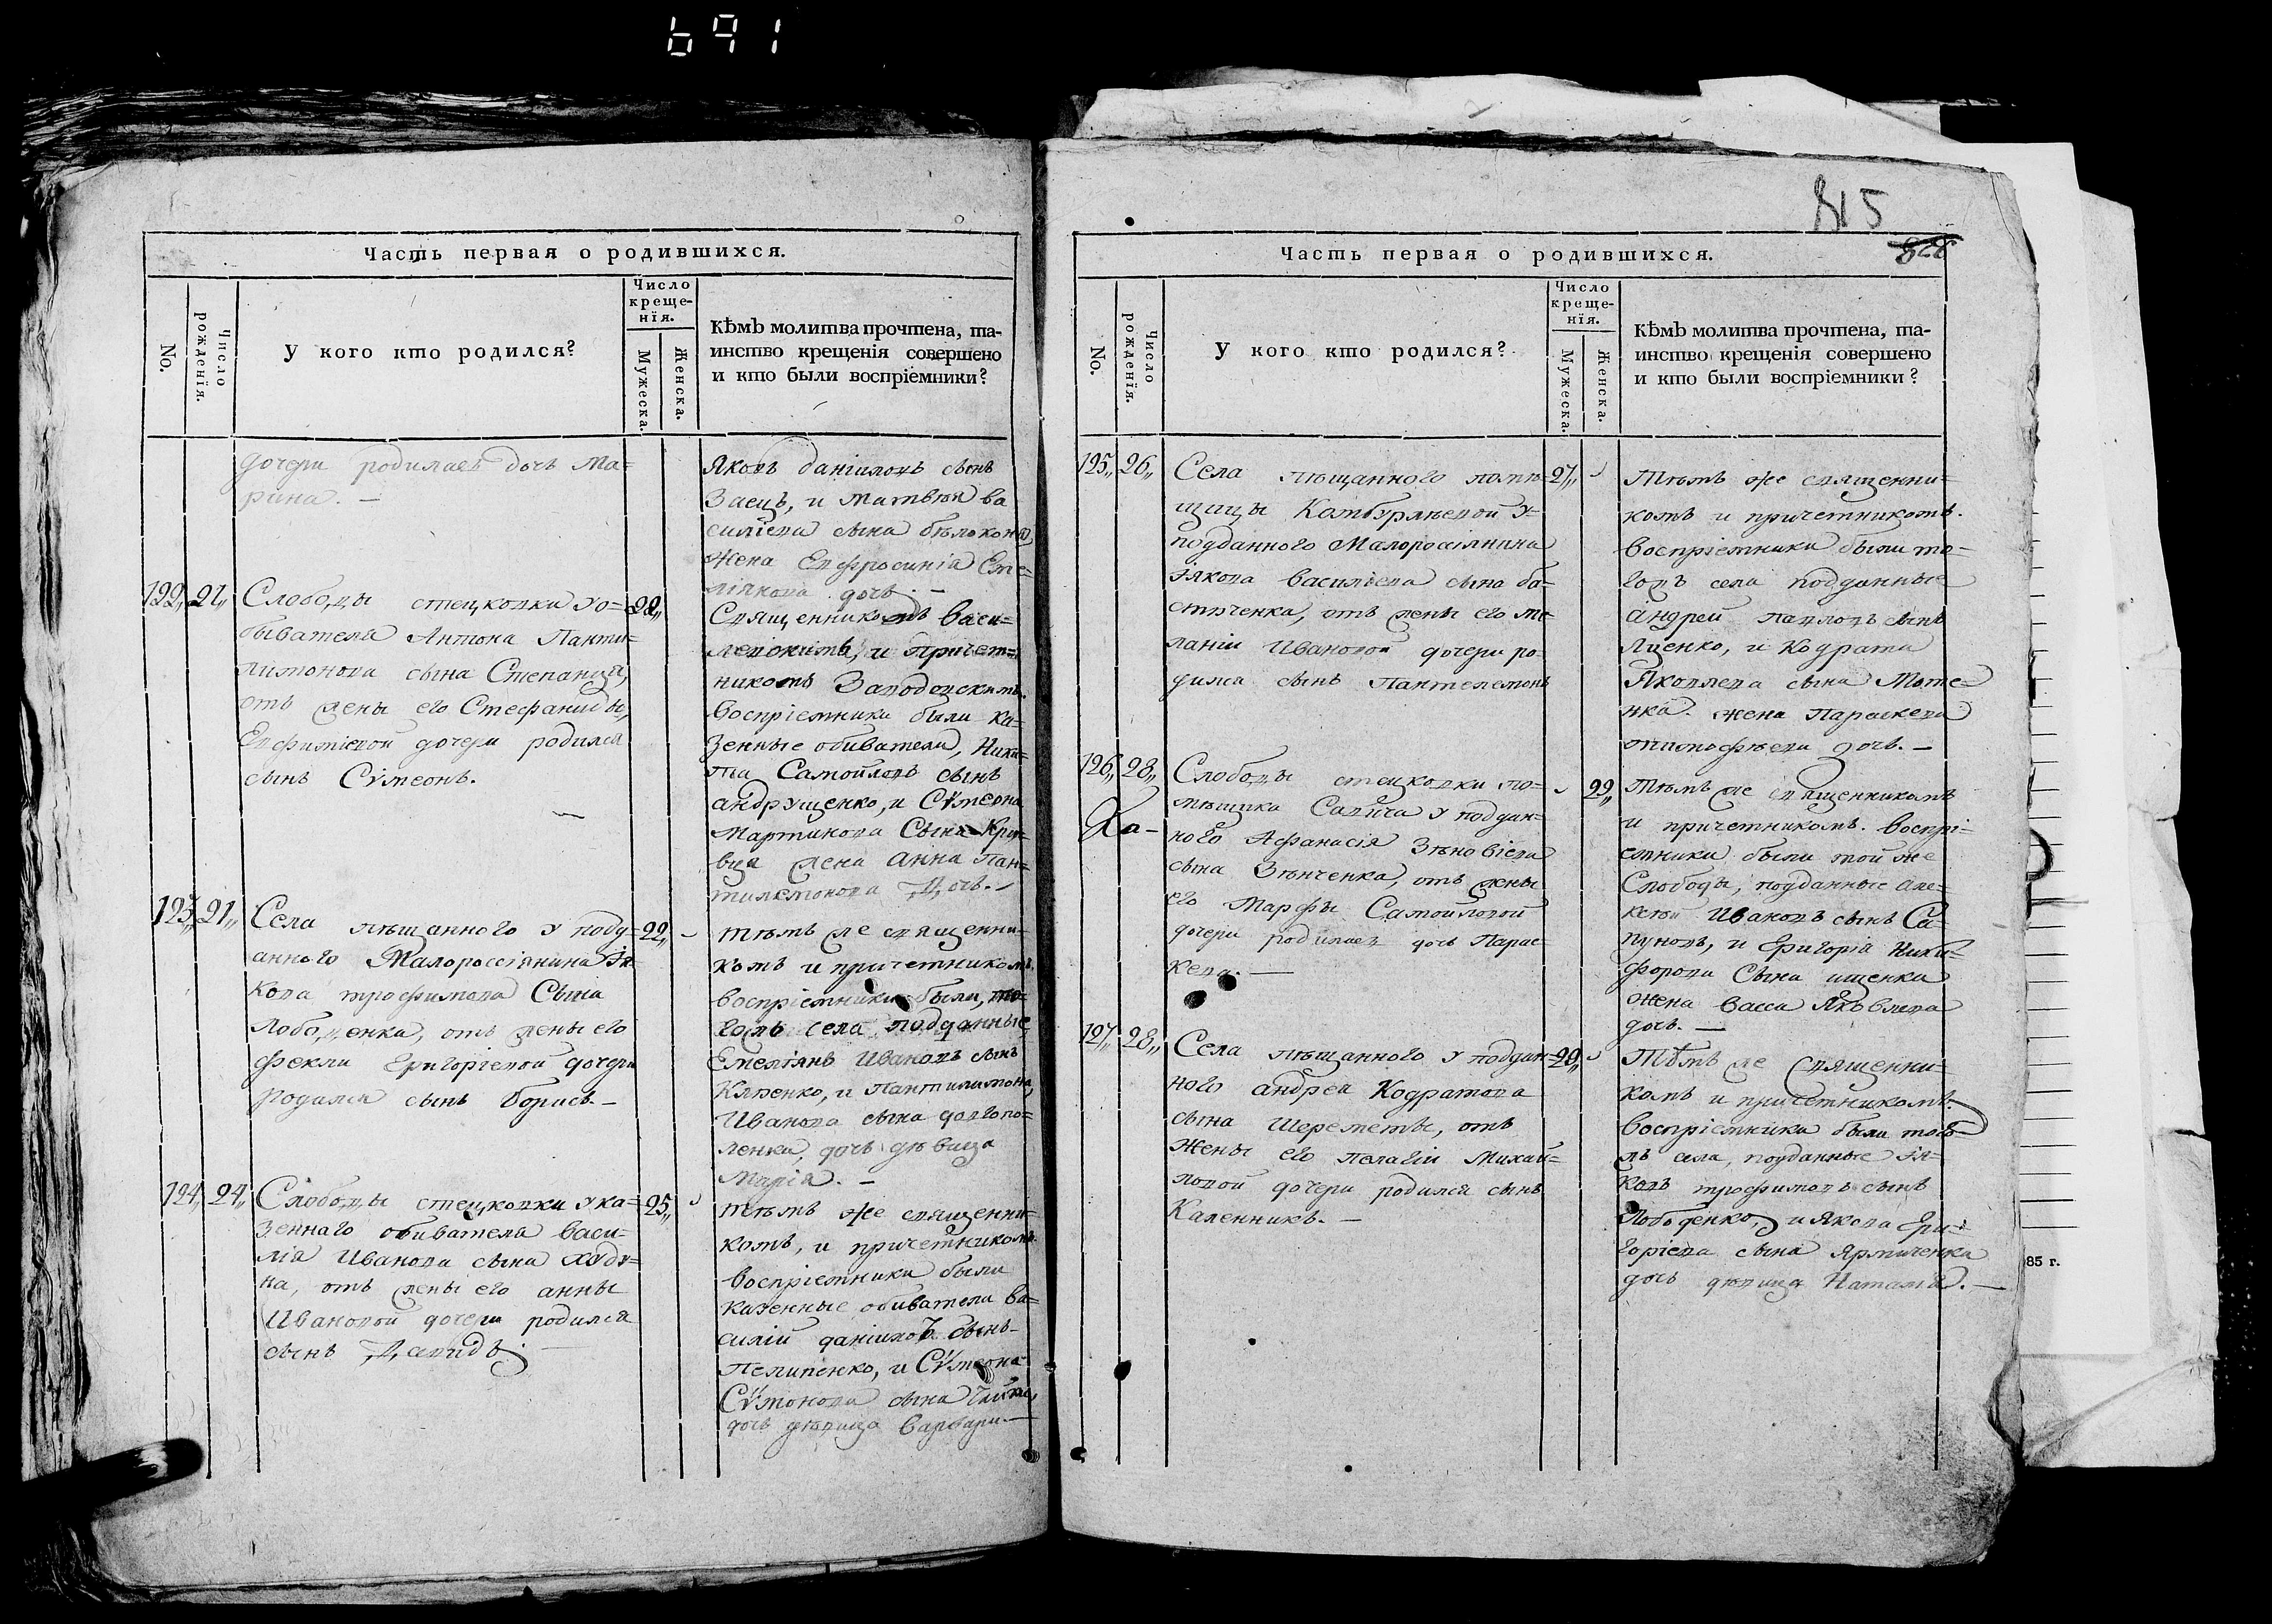 691
Часть первая о родившихся.
No.
Число рожденїя.
У кого кто родился?
Число
креще-
нїя.
Мужеска.
Женска.
Кѣмъ молитва прочтена, та-
инство крещенія совершено
и кто были воспріемники?
дочери родилась дочь Ма=
рина. —
Яковъ Даніиловъ сынъ
Заецъ, и Матвѣя Ва
силіева сына Бѣлоконя
жена Евфросинія Еме=
ліянова дочь. —
122„ 21„
Слободы стецковки у о=
бывателя Антона Панти=
лимонова сына Степанца,
отъ жены его Стефаниды,
Евфиміевой дочери родился
сынъ Сѵмеонъ.
22„
Священникомъ Васи=
и причет=
никомъ
воспріемники были ка=
зенные обиватели, Ники=
та Самойловъ сынъ
Андрущенко, и Сѵмеона
Мартинова Сына Кри=
вця жена Анна Пан=
тилемонова Дочь. —
123„ 21„
Села пѣщанного у подд=
анного Малороссіянина Ія=
кова трофимова Сына
Лободенка, отъ жены его
Феклы Григоріевой дочери
родился сынъ Борисъ. —
22„
тѣмъ же священни=
комъ и причетникомъ.
воспріемники были, то=
гожъ села подданные
Емеліянъ Ивановъ сынъ
и Пантилимона
Иванова сына Долгопо=
ленка, дочь дѣвица
Марія. —
124„ 24„
Слободы стецковки у ка=
зеннаго обивателя Васи=
лія Иванова сына Худо=
на, отъ жены его анны
Ивановой дочери родился
сынъ Давидъ. —
25„
тѣмъ же священни=
комъ, и причетникомъ.
воспріемники были
казенные обиватели Ва=
силій Даніиловъ сынъ
Пелипенко, и Сѵмеона
Сѵмонова сына
дочь дѣвица Варвара. —
815
Часть первая о родившихся.
No.
Число рожденїя.
У кого кто родился?
Число
креще-
нїя.
Мужеска.
Женска.
Кѣмъ молитва прочтена, та-
инство крещенія совершено
и кто были воспріемники?
125„ 26„
Села пѣщанного помѣ=
щицы Камбурлѣевой у=
подданного Малороссіянина
Іякова Васильева сына
отъ жены его Ме=
ланіи Ивановой дочери ро=
дился сынъ Пантелемонъ
27„
Тѣмъ же священни=
комъ и причетникомъ.
воспріемники были то=
гожъ села подданные
Андрей Павловъ сынъ
Яценко, и Кодрата
Яковлева сына
жена Параскева
Тимофѣева дочь. —
126„ 28„
Слободы стецковки по=
мѣщика Савича у поддан=
ного Афанасія Зѣновіева
сына Зѣнченка, отъ жены
его Марфы Самойловой
дочери родилась дочь Парас=
кева. —
29„
Тѣмъ же священникомъ
и причетникомъ. воспрі=
емники были той же
Слободы, подданные Але=
ксѣй Ивановъ сынъ Са=
пуновъ, и Григорія Ники=
форова Сына ищенка
жена Васса Яковлева
дочь. —
127„ 28„
Села пѣщанного у поддан=
ного Андрея Кодратова
сына Шереметы, отъ
жены его Пелагіи Михай=
ловой дочери родился сынъ
Каленникъ. —
29„
Тѣмъ же священни=
комъ и причетникомъ.
воспріемники были того=
жъ села, подданные Ія=
ковъ трофимовъ сынъ
Лободенко, и Якова Гри=
горіева сына Ярмиченка
дочь дѣвица Наталія. —
85 г.